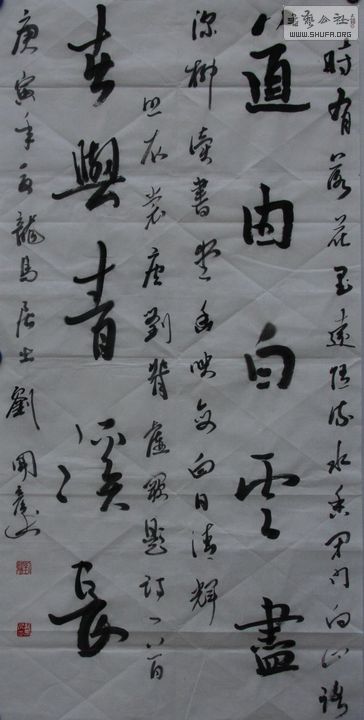 道由白雲盡
春與青溪長
時有落花至遠隨流水香閑門向山路
深柳讀書堂幽映每白日清輝
照衣裳唐劉眘虛闕題詩一首
庚寅年夏龍馬居士劉開
書藝公社
WWW.SHUFA.ORG